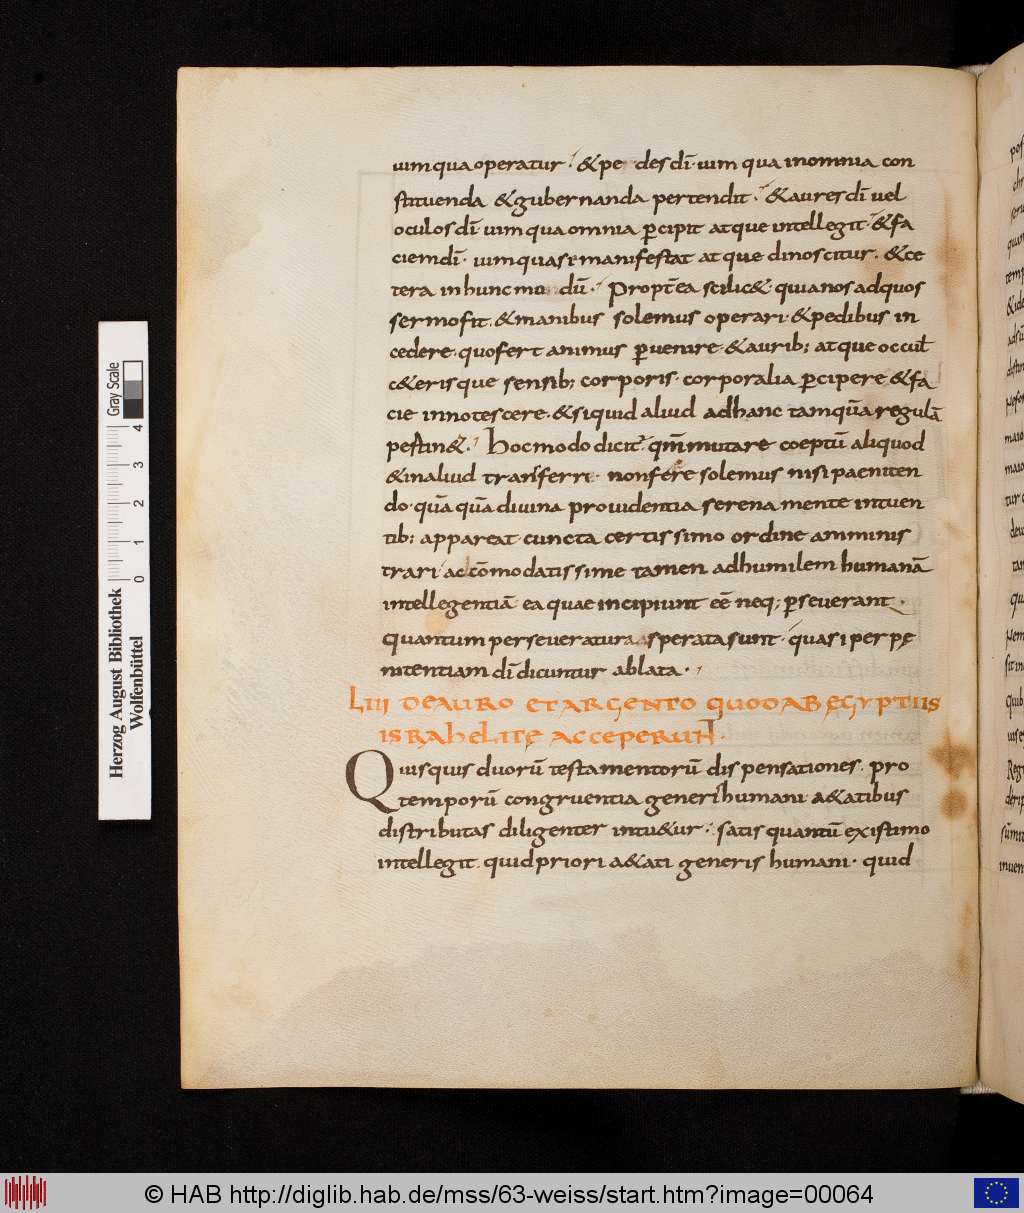 uim qua operatur · & pe des dī · uim qua in omnia con
stituenda & gubernanda pertendit · & aures dī uel
oculos dī uim qua omnia ꝑcipit atque intellegit · & fa
ciem dī · uim qua se manifestat atque dinoscitur · & ce
tera in hunc mo dū · Propt̄ea scilic& · quia nos ad quos
sermo fit · & manibus solemus operari · & pedibus in
cedere · quo fert animus ꝑuenire · & aurib; atque ocul
c&erisque sensib; corporis · corporalia ꝑcipere & fa
cie innotescere · & siquid aliud ad hanc tamquā regulā
pertin& · Hoc modo dicit̄ · qm̄ mutare coeptū aliquod
& in aliud transferri · non fere solemus nisi paeniten
do · quāquā diuina prouidentia serena mente intuen
tib; appareat cuncta certissimo ordine amminis
trari · accōmodatissime tamen ad humilem humanā
intellegentiā ea quae incipiunt eē neq; ꝑseuerant ·
quantum perseueratura sperata sunt · quasi per pę
nitentiam dī dicuntur ablata ·
LIII DE AURO ET ARGENTO QUOD AB ĘGYPTIIS
ISRAHELITĘ ACCEPERUNT ·
Quisquis duorū testamentorū dispensationes · pro
temporū congruentia generi humani a&atibus
distributas diligenter intu&ur · satis quantū existimo
intellegit · quid priori a&ati generis humani · quid
Herzog August Bibliothek
Wolfenbüttel
0 1 2 3 4
Gray Scale
© HAB http://diglib.hab.de/mss/63-weiss/start.htm?image=00064